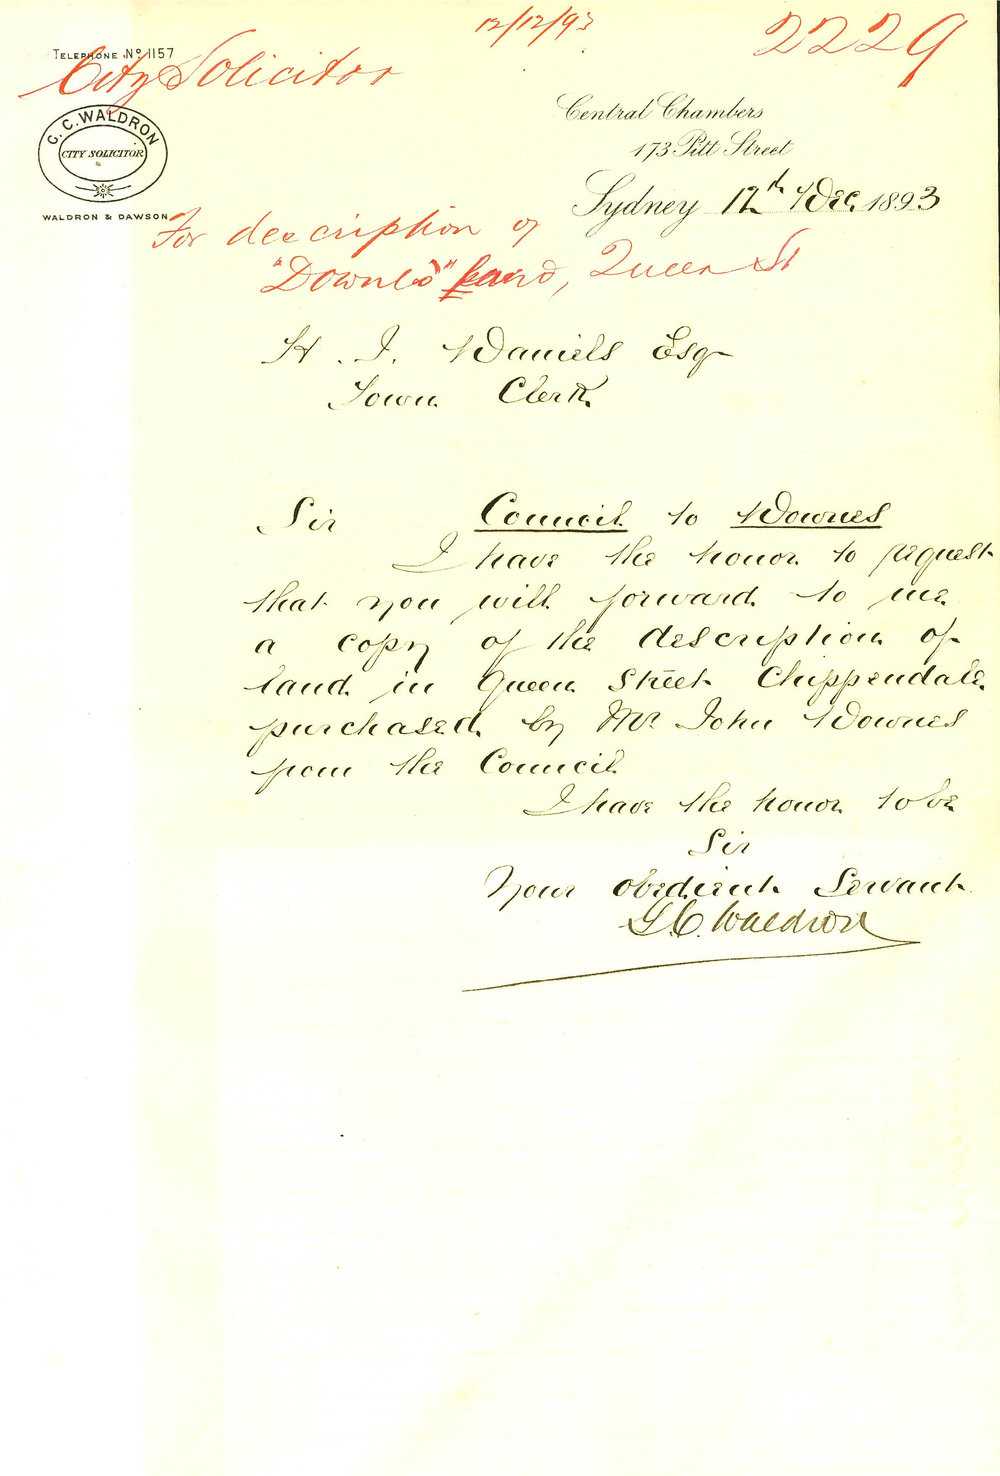 12/12/93
2229
TELEPHONE No. 1157
City Solicitor
G. C. WALDRON
CITY SOLICITOR
WALDRON & DAWSON
Central Chambers
173 Pitt Street
Sydney 12th Dec. 1893
For description of
"Downes" land, Queen St
H. J. Daniels Esq
Town Clerk
Sir Council to Downes
I have the honor to request
that you will forward to me
a copy of the description of
land in Queen Street Chippendale
purchased by Mr. John Downes
from the Council
I have the honor to be
Sir
Your obedient Servant
G. C. Waldron